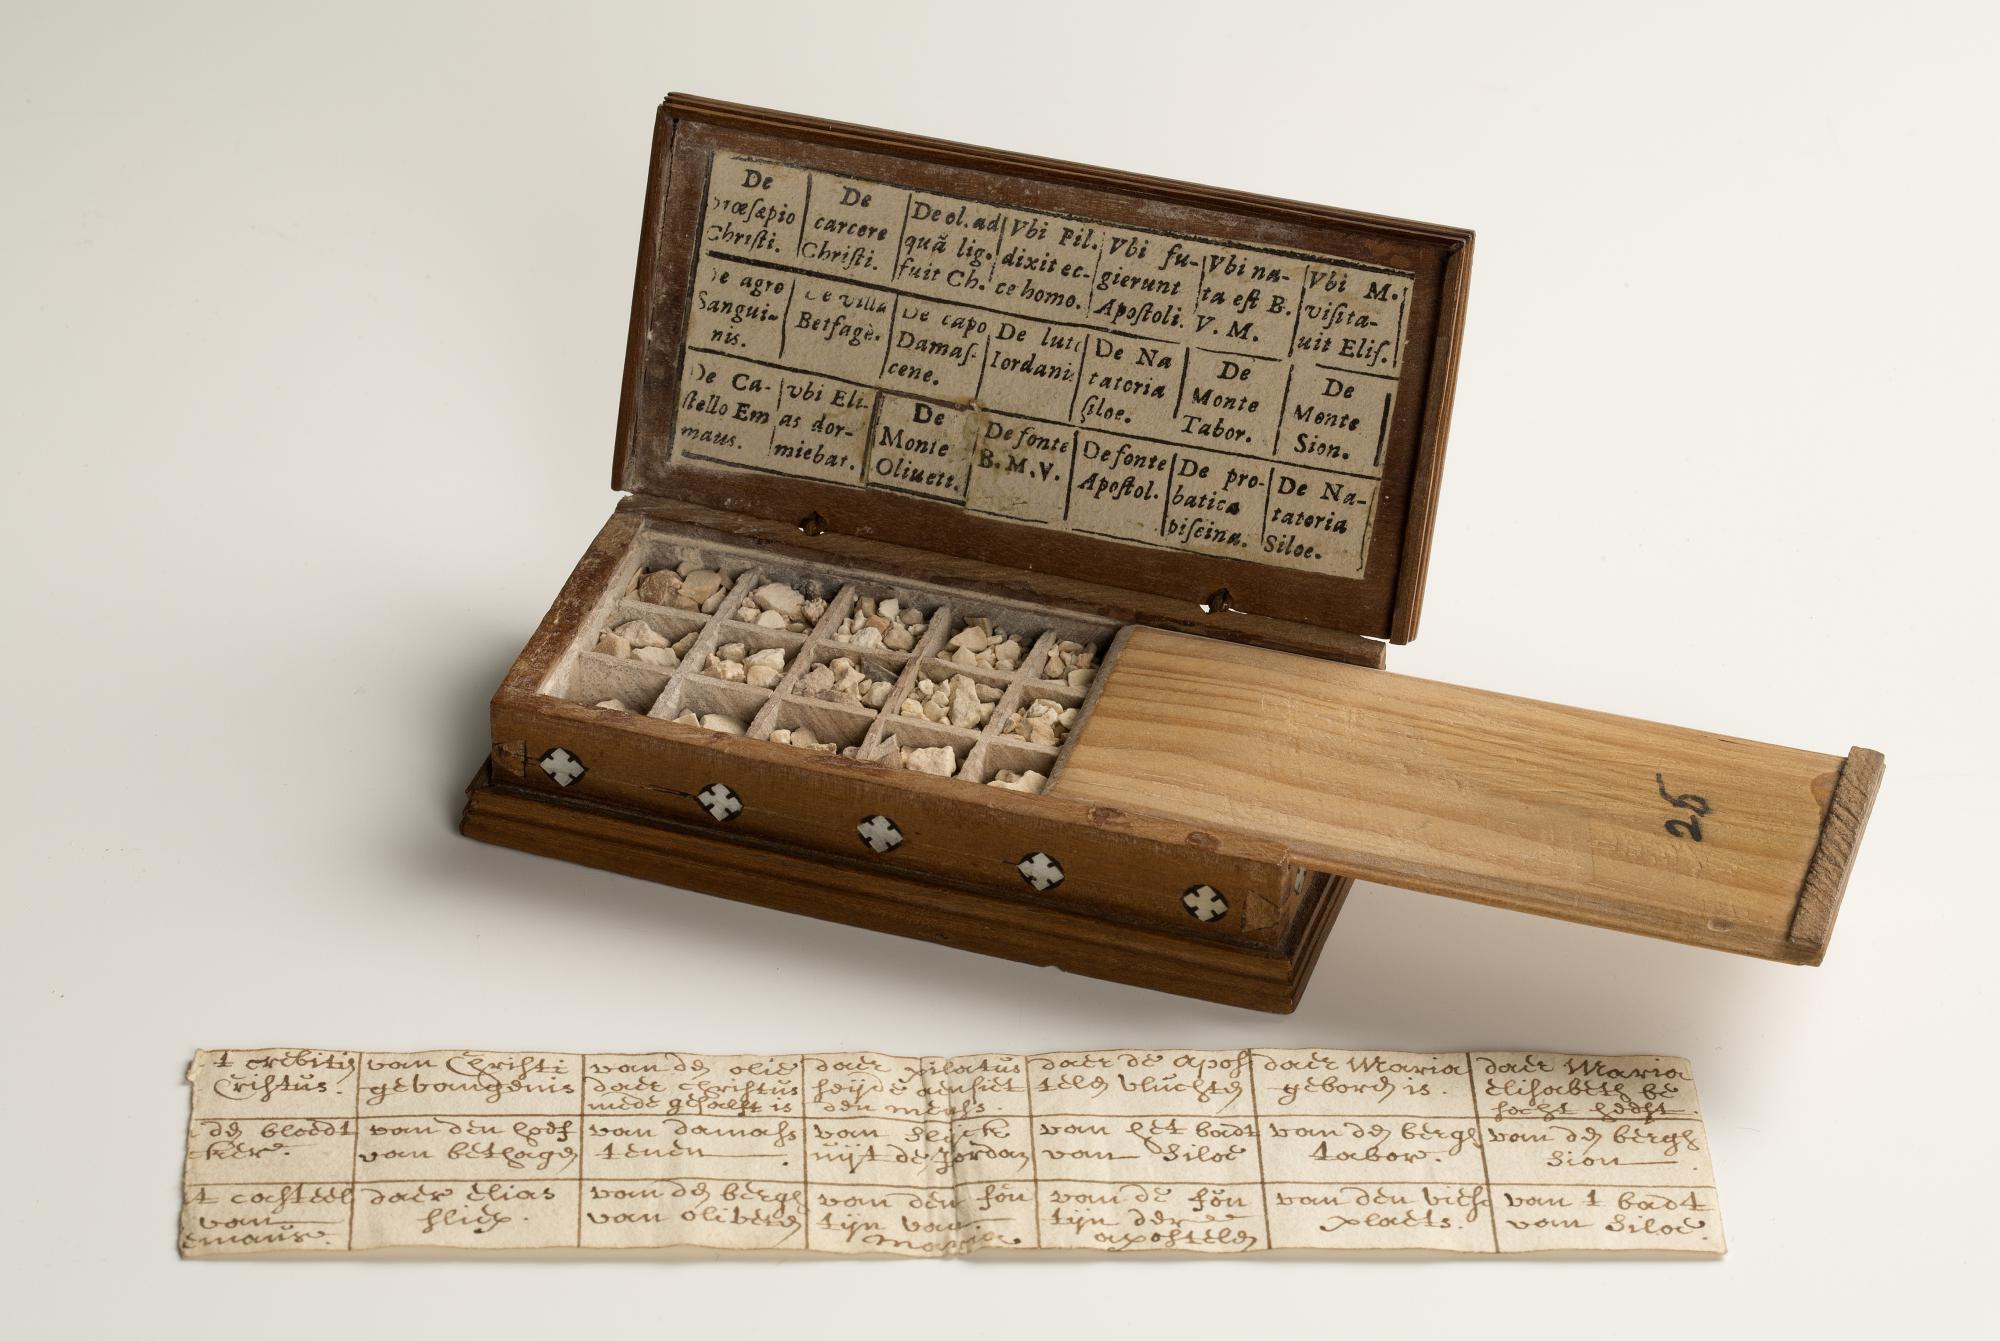 De
præsepio
Christi.
De
carcere
Christi.
De ol. ad
quã lig.
fuit Ch.
Vbi Pil.
dixit ec-
ce homo.
Vbi fu-
gierunt
Apostoli.
Vbi na-
ta est B.
V. M.
Vbi M.
visita-
uit Elis.
De agro
Sangui-
nis.
De villa
Betfagè.
De capo
Damas-
cene.
De luto
Iordani
De Na
tatoria
Siloe.
De
Monte
Tabor.
De
Monte
Sion.
De Ca-
stello Em
maus.
vbi Eli-
as dor-
miebat.
De
Monte
Oliueti.
De fonte
B. M. V.
De fonte
Apostol.
De pro-
batica
piscina.
De Na-
tatoria
Siloe.
25
t crebitiӡ
Cristus.
van Christi
gevangenis
van dӡ olie
daer Christus
mede gesalft is
daer pilatus
seijde aensiet
den mensch.
daer de apos
telӡ vluchtӡ
daer Maria
geborӡ is.
daer Maria
elisabeth be
socht heeft.
dӡ bloedt
cker.
van den hoef
van bethagӡ
van damass
tenen
van slijcke
uijt de Jordan
van het badt
van Siloe
van dӡ bergh
tabor.
van dӡ bergh
Sion
t casteel
van
emaus.
daer elias
sliep.
van dӡ bergh
van olivetӡ
van den fon
tijn van
Maria
van de fon
tijn der
apostelӡ
van den visch
plaets.
van t badt
van Siloe.